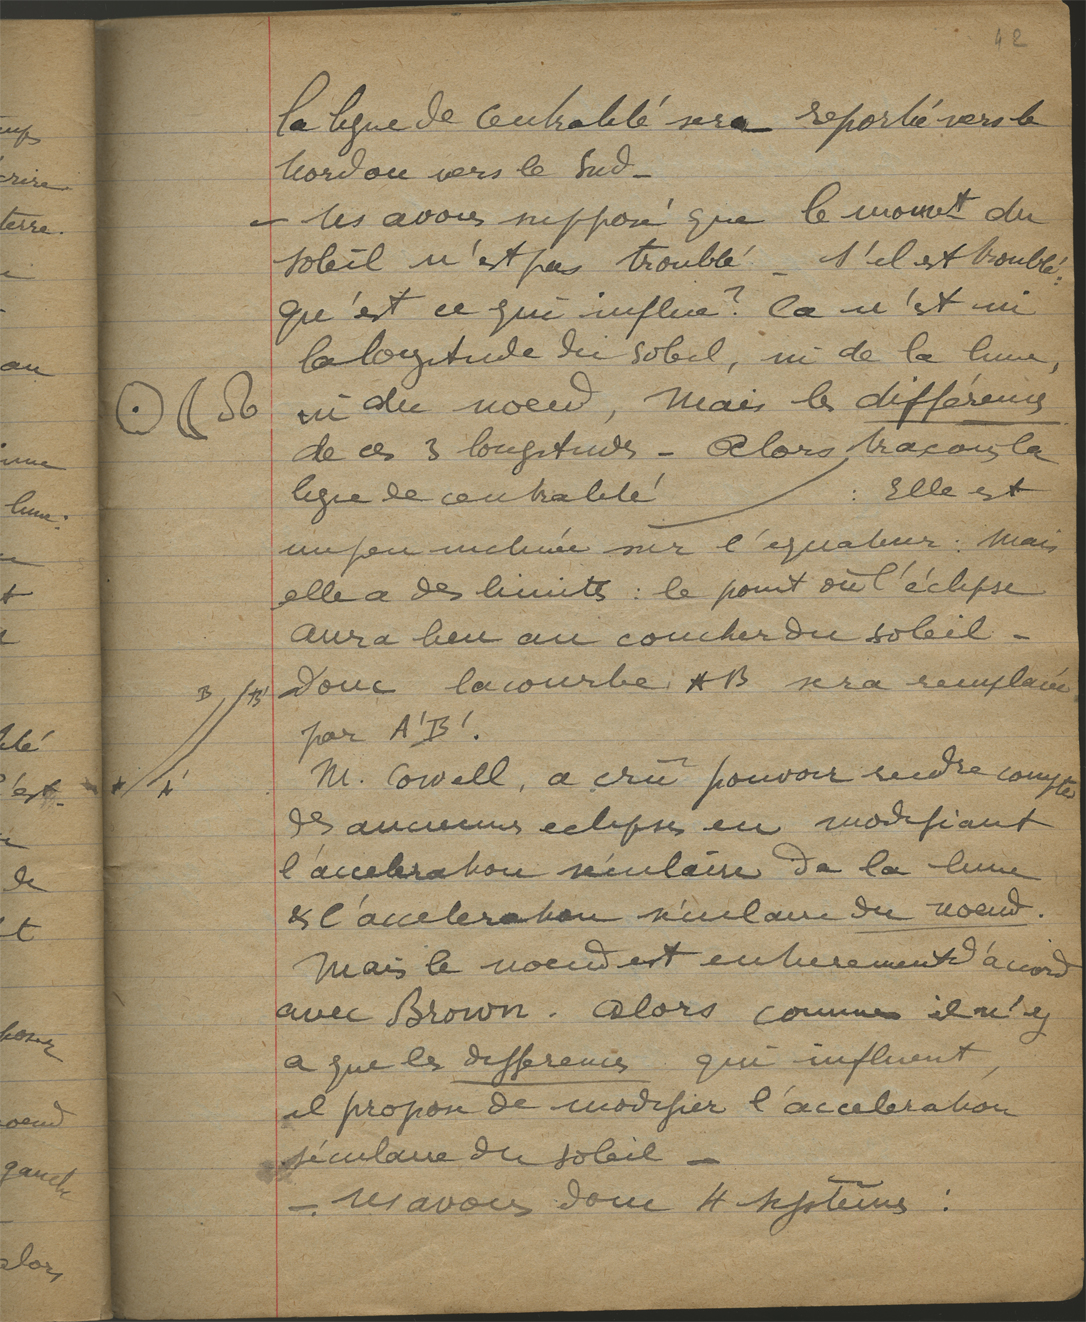 42
la ligne de Centralité sera reportée vers le
nord ou vers le Sud -
- ns avons supposé que le mouvet du
soleil n'est pas troublé - s'il est troublé:
qu'est ce qui influe? Ca n'est ni
la longitude du soleil, ni de la lune,
ni du noeud, Mais les différences
de ces 3 longitudes - Alors traçons la
ligne de centralité : Elle est
un peu inclinée sur l'equateur : Mais
elle a des limites : le point où l'éclipse
aura lieu au coucher du soleil -
Donc la courbe AB sera remplacée
par A'B'.
B B'
A A'
M. Cowell, a crû pouvoir rendre compte
des anciennes eclipses en modifiant
l'acceleration séculaire de la lune
& l'acceleration séculaire du noeud.
Mais le noeud est entierement d'accord
avec Brown. Alors comme il n'y
a que les differences qui influent,
il propose de modifier l'acceleration
séculaire du soleil -
- ns avons donc 4 systèmes :
au
lune.
terre.
l'est
de
noeud
gauche
alors